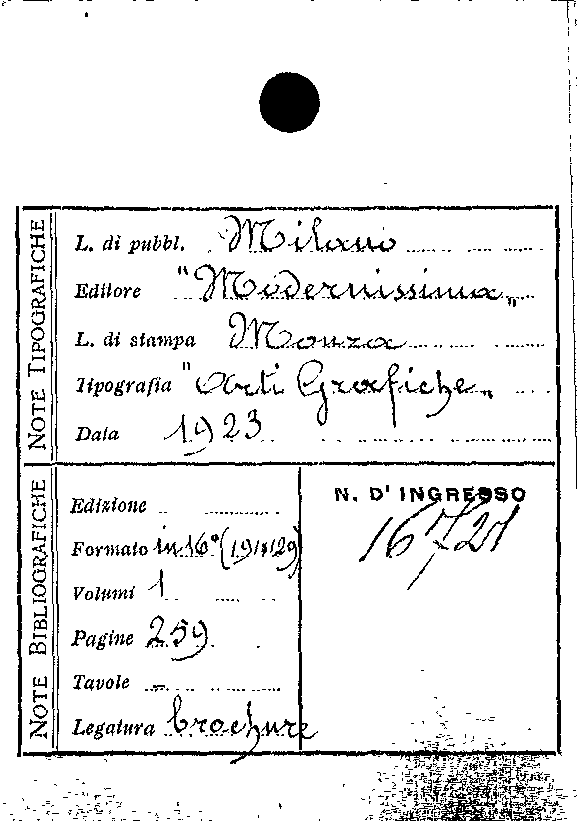 NOTE TIPOGRAFICHE
L. di pubbl. Milano
Editore "Modernissima„
L. di stampa Monza
Tipografia "Arti Grafiche„
Data 1923
NOTE BIBLIOGRAFICHE
Edizione
Formato in 16°
Volumi 1
Pagine 259
Tavole –
Legatura brochure
N. D' INGRESSO
16721